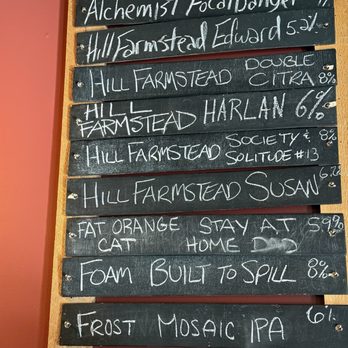 Alchemist Focal Banger
Hill Farmstead Edward 5.2%
HILL FARMSTEAD DOUBLE CITRA 8%
HILL FARMSTEAD HARLAN 6%
HILL FARMSTEAD SOCIETY & SOLITUDE #13 8%
HILL FARMSTEAD SUSAN 6.2%
FAT ORANGE CAT STAY AT HOME DAD 5.9%
FOAM BUILT TO SPILL 8%
FROST MOSAIC IPA 6%